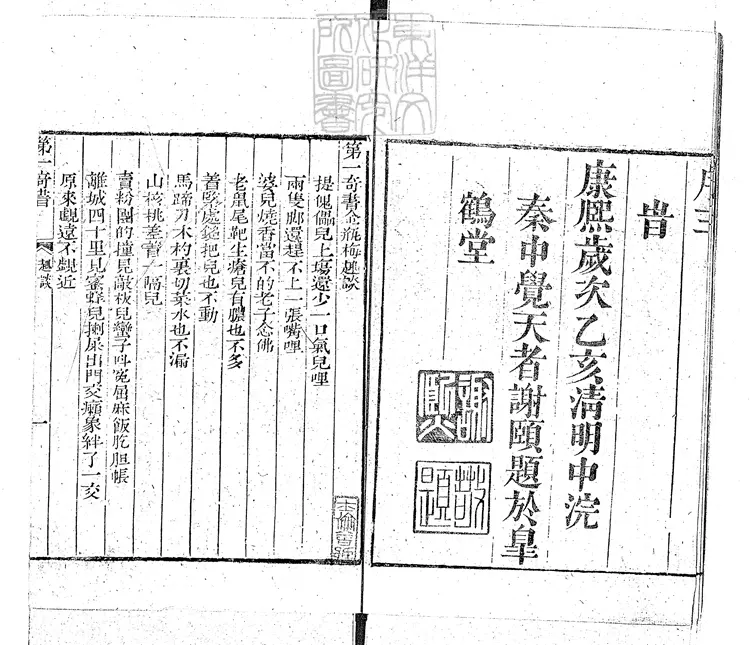 旹
康熙歲次乙亥清明中浣
秦中覺天者謝頤題於皐
鶴堂
東洋文化研究所圖書
第一奇書金瓶梅趣談
提傀儡兒上塲還少一口氣兒哩
兩隻脚還趕不上一張嘴哩
婆兒燒香當不的老子念佛
老鼠尾靶生瘡兒有膿也不多
着緊處錐把兒也不動
馬蹄刀木杓裏切菜水也不漏
山核桃差着一隔兒
賣粉團的撞見敲板兒蠻子叫寃屈麻飯肐胆帳
離城四十里見蜜蜂兒拶屎出門交癩象絆了一交
原來覷遠不覷近
第一奇書 趣談 一